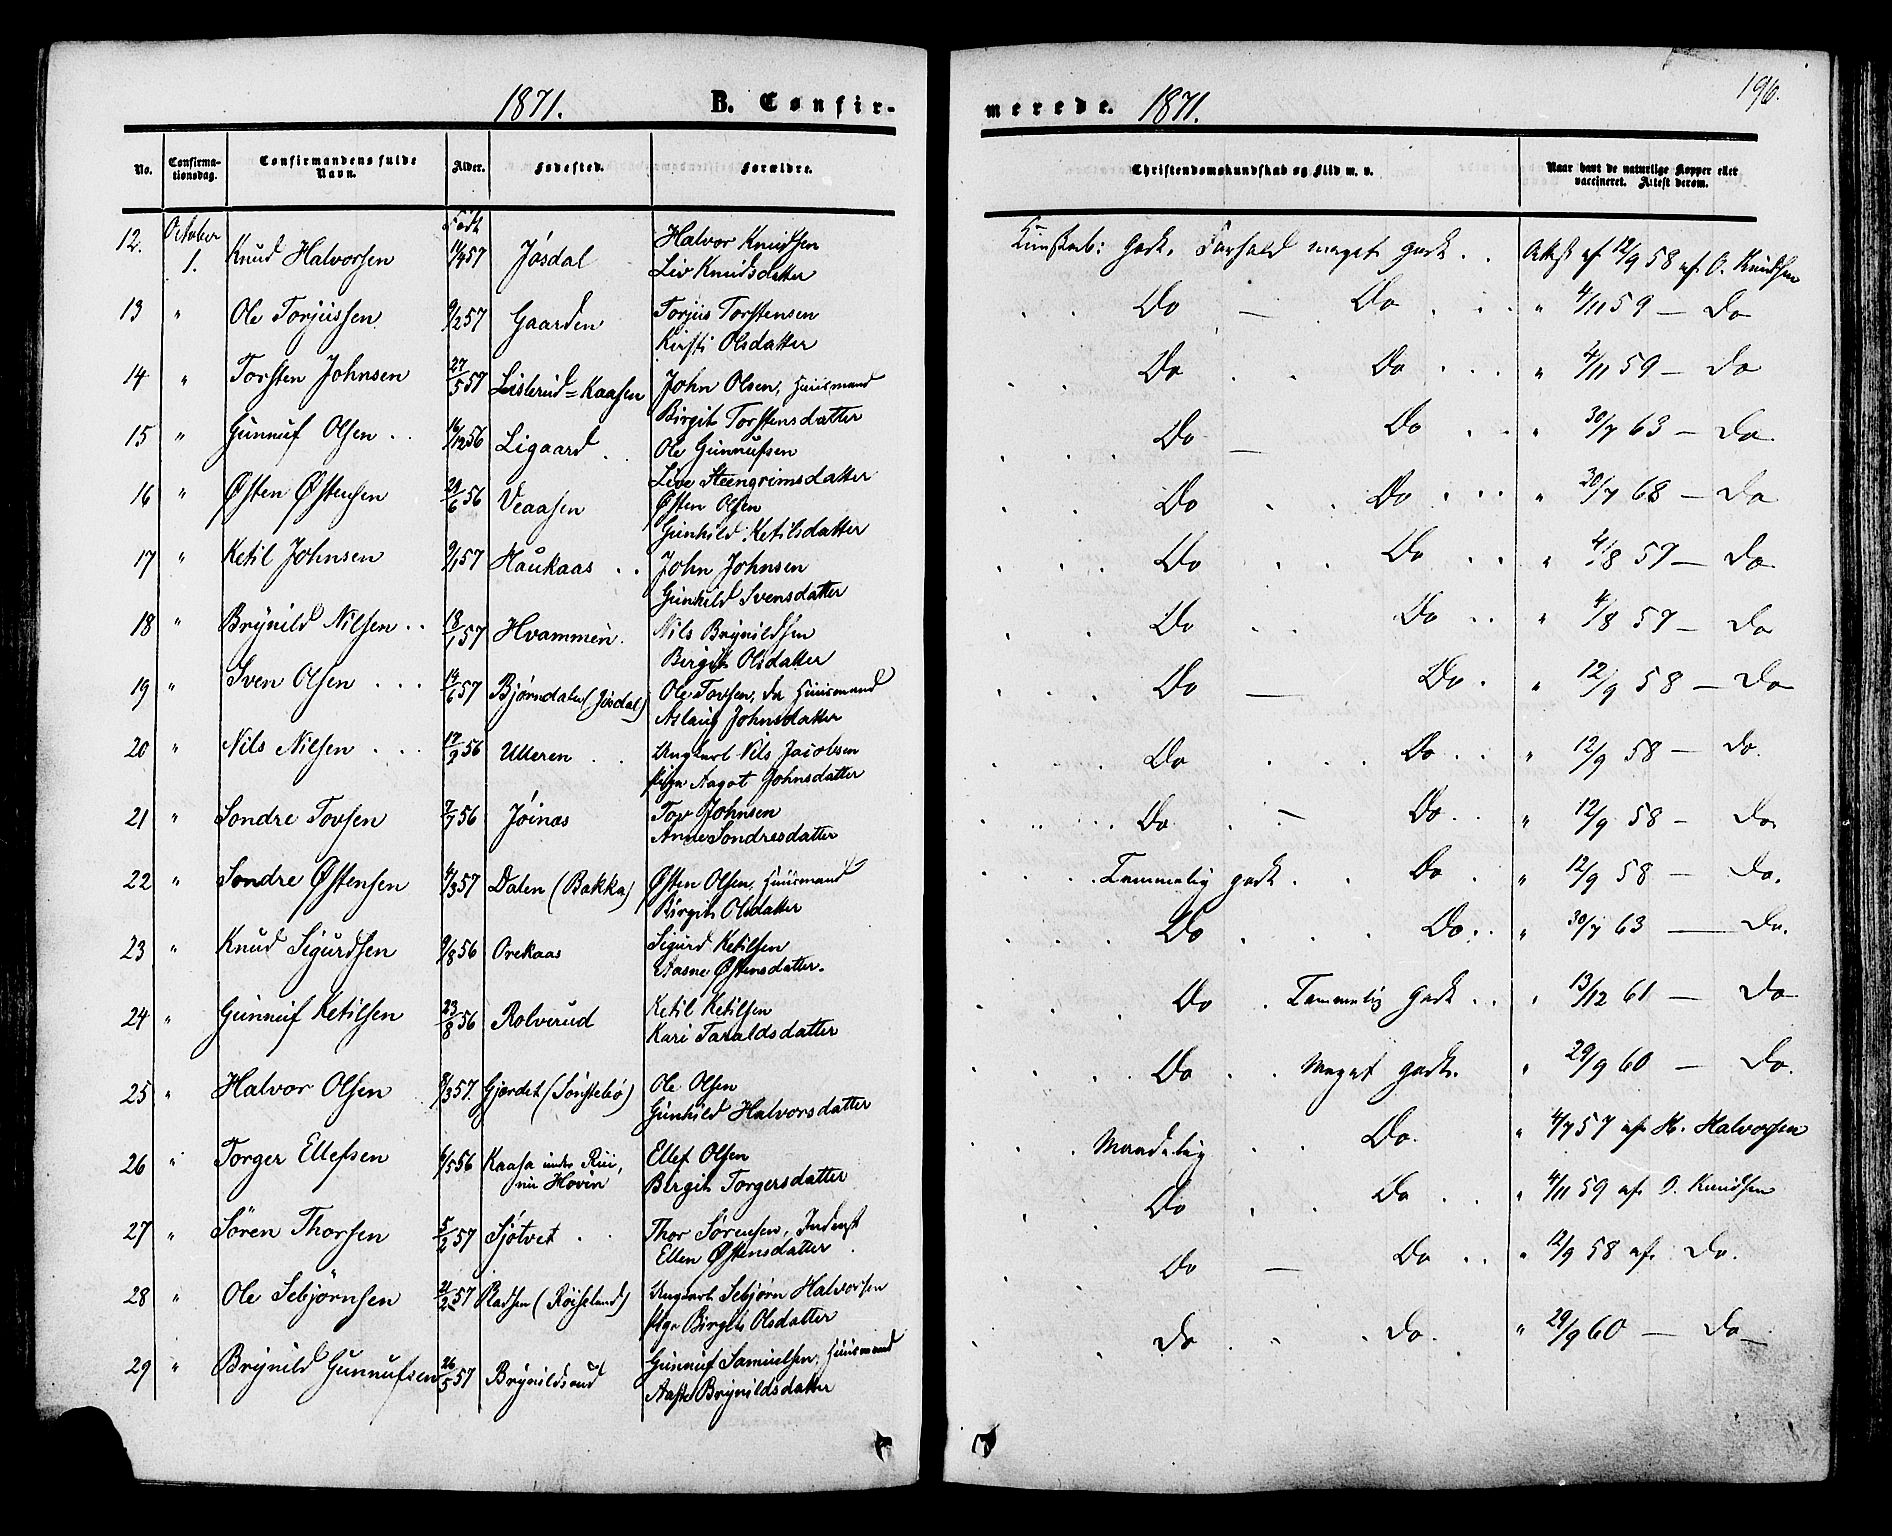 1871. B. Confir-
merede. 1871. 196.
No. Confirma-tionsdag. Confirmandens fulde Navn. Alder. Fødested. Forældre. Christendomskundskab og Flid m. v. Naar havt de naturlige Kopper eller vaccineret. Attest derom.
12. October 1. Knud Halvorsen Født 11/4 57 Jósdal Halvor Knudsen Kundskab: godt. Forhold meget godt. Attest af 12/9 58 af O. Knudsen
Liv Knudsdatter
13 " Ole Torjussen 9/2 57 Gaarden Torjus Torstensen Do Do " 4/11 59 — Do
Kirsti Olsdatter
14 " Torsten Johnsen 27/5 57 Lislerud=Kaasen John Olsen, Huusmand Do Do " 4/11 59 — Do
Birgit Torstensdatter
15 " Gunnuf Olsen 16/12 56 Ligaard Ole Gunnufsen Do — Do " 30/7 63 — Do
Live Steengrimsdatter
16 " Østen Østensen 29/6 56 Veaasen Østen Olsen Do Do " 30/7 68 — Do
Gunhild Ketilsdatter
17 " Ketil Johnsen 9/1 57 Haukaas John Johnsen Do Do " 4/8 57 — Do
Gunhild Svensdatter
18 " Brynild Nilsen 18/1 57 Hvammen Nils Brynildsen Do Do " 4/8 57 — Do
Bergit Olsdatter
19 " Sven Olsen 14/6 57 Bjørndalen (Josdal) Ole Tovsen, do Huusmand Do — Do " 12/9 58 — Do
Aslaug Johnsdatter
20 " Nils Nilsen 17/3 56 Ulleren Ungkarl Nils Jacobsen Do Do " 12/9 58 — Do.
Pige Aagot Johnsdatter
21 " Sondre Tovsen 7/7 56 Jóinas Tov Johnsen Do — Do " 12/9 58 — Do.
Anne Sondresdatter
22 " Sondre Østensen 4/3 57 Dalen (Bakka) Østen Olsen, Huusmand Temmelig godt Do " 12/9 58 — Do.
Birgit Olsdatter
23 " Knud Sigurdsen 9/8 56 Orekaas Sigurd Ketilsen Do Do " 30/7 63 — Do.
Aasne Østensdatter.
24 " Gunnuf Ketilsen 23/8 56 Rolverud Ketil Ketilsen Do Temmelig godt " 13/12 61 — Do
Kari Taraldsdatter
25 " Halvor Olsen 8/3 57. Gjerdet (Sønstebø) Ole Olsen Do Meget godt. " 29/9 60 — Do.
Gunhild Halvorsdatter
26 " Torger Ellefsen 6/5 56 Kaasa under Rui, nu Hovin Ellef Olsen Maadelig Do. " 4/7 57 af H. Halvorsen
Bergit Torgersdatter
27 " Søren Thorsen 5/2 57 Sjøtvet Thor Sørensen, Inderst Do Do " 4/11 59 af O. Knudsen
Ellen Østensdatter
28 " Ole Sebjørnsen 21/2 57 Pladsen (Røiseland) Ungkarl Sebjørn Halvorsen Do — Do " 12/9 58 af Do.
Pige Birgit Olsdatter
29 " Brynild Gunnufsen 26/5 57 Brynildsrud Gunnuf Samuelsen, Huusmand Do Do. " 29/9 60 — Do
Aaste Brynildsdatter